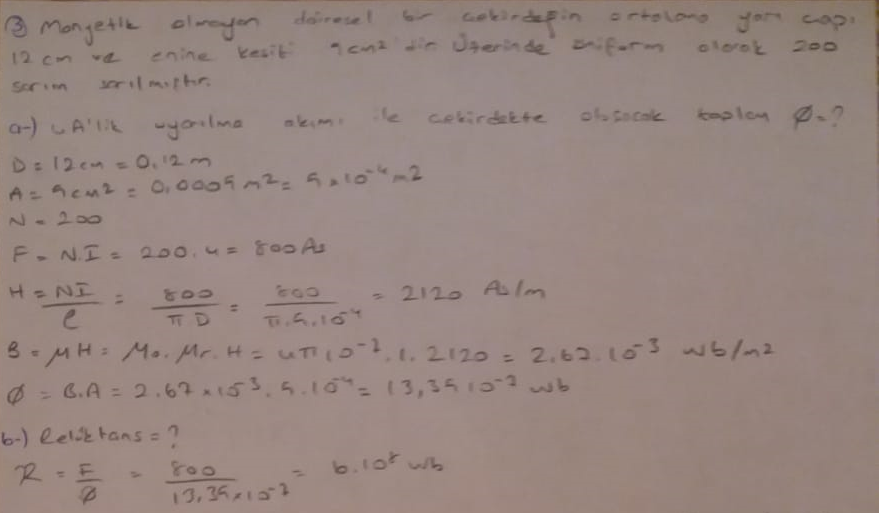 ③ Manyetik olmayan dairesel bir çekirdeğin ortalama yarı çapı
12 cm ve enine kesiti 5cm² dir Üzerinde üniform olarak 200
sarım sarılmıştır.
a-) 4A'lik uyarılma akımı ile çekirdekte oluşacak toplam Ø=?
D = 12cm = 0,12 m
A = 5cm² = 0,0005 m² = 5 x 10⁻⁴ m2
N = 200
F = N.I = 200.4 = 800 As
H = NI/l = 800/π.D = 800/π.5.10⁻⁴ = 2120 As/m
B = μH = Mo.Mr.H = 4π10⁻⁷.1.2120 = 2.67.10⁻³ wb/m2
Ø = B.A = 2.67 x 10⁻³.5.10⁻⁴ = 13,35 10⁻⁷ wb
b-) Relüktans = ?
R = F/Ø = 800/13,35x10⁻⁷ = 6.10⁸ wb